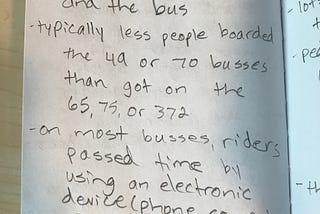 and the bus
-typically less people boarded
the 49 or 70 busses
than got on the
65, 75, or 372
-on most busses, riders
passed time by
using an electronic
device (phone